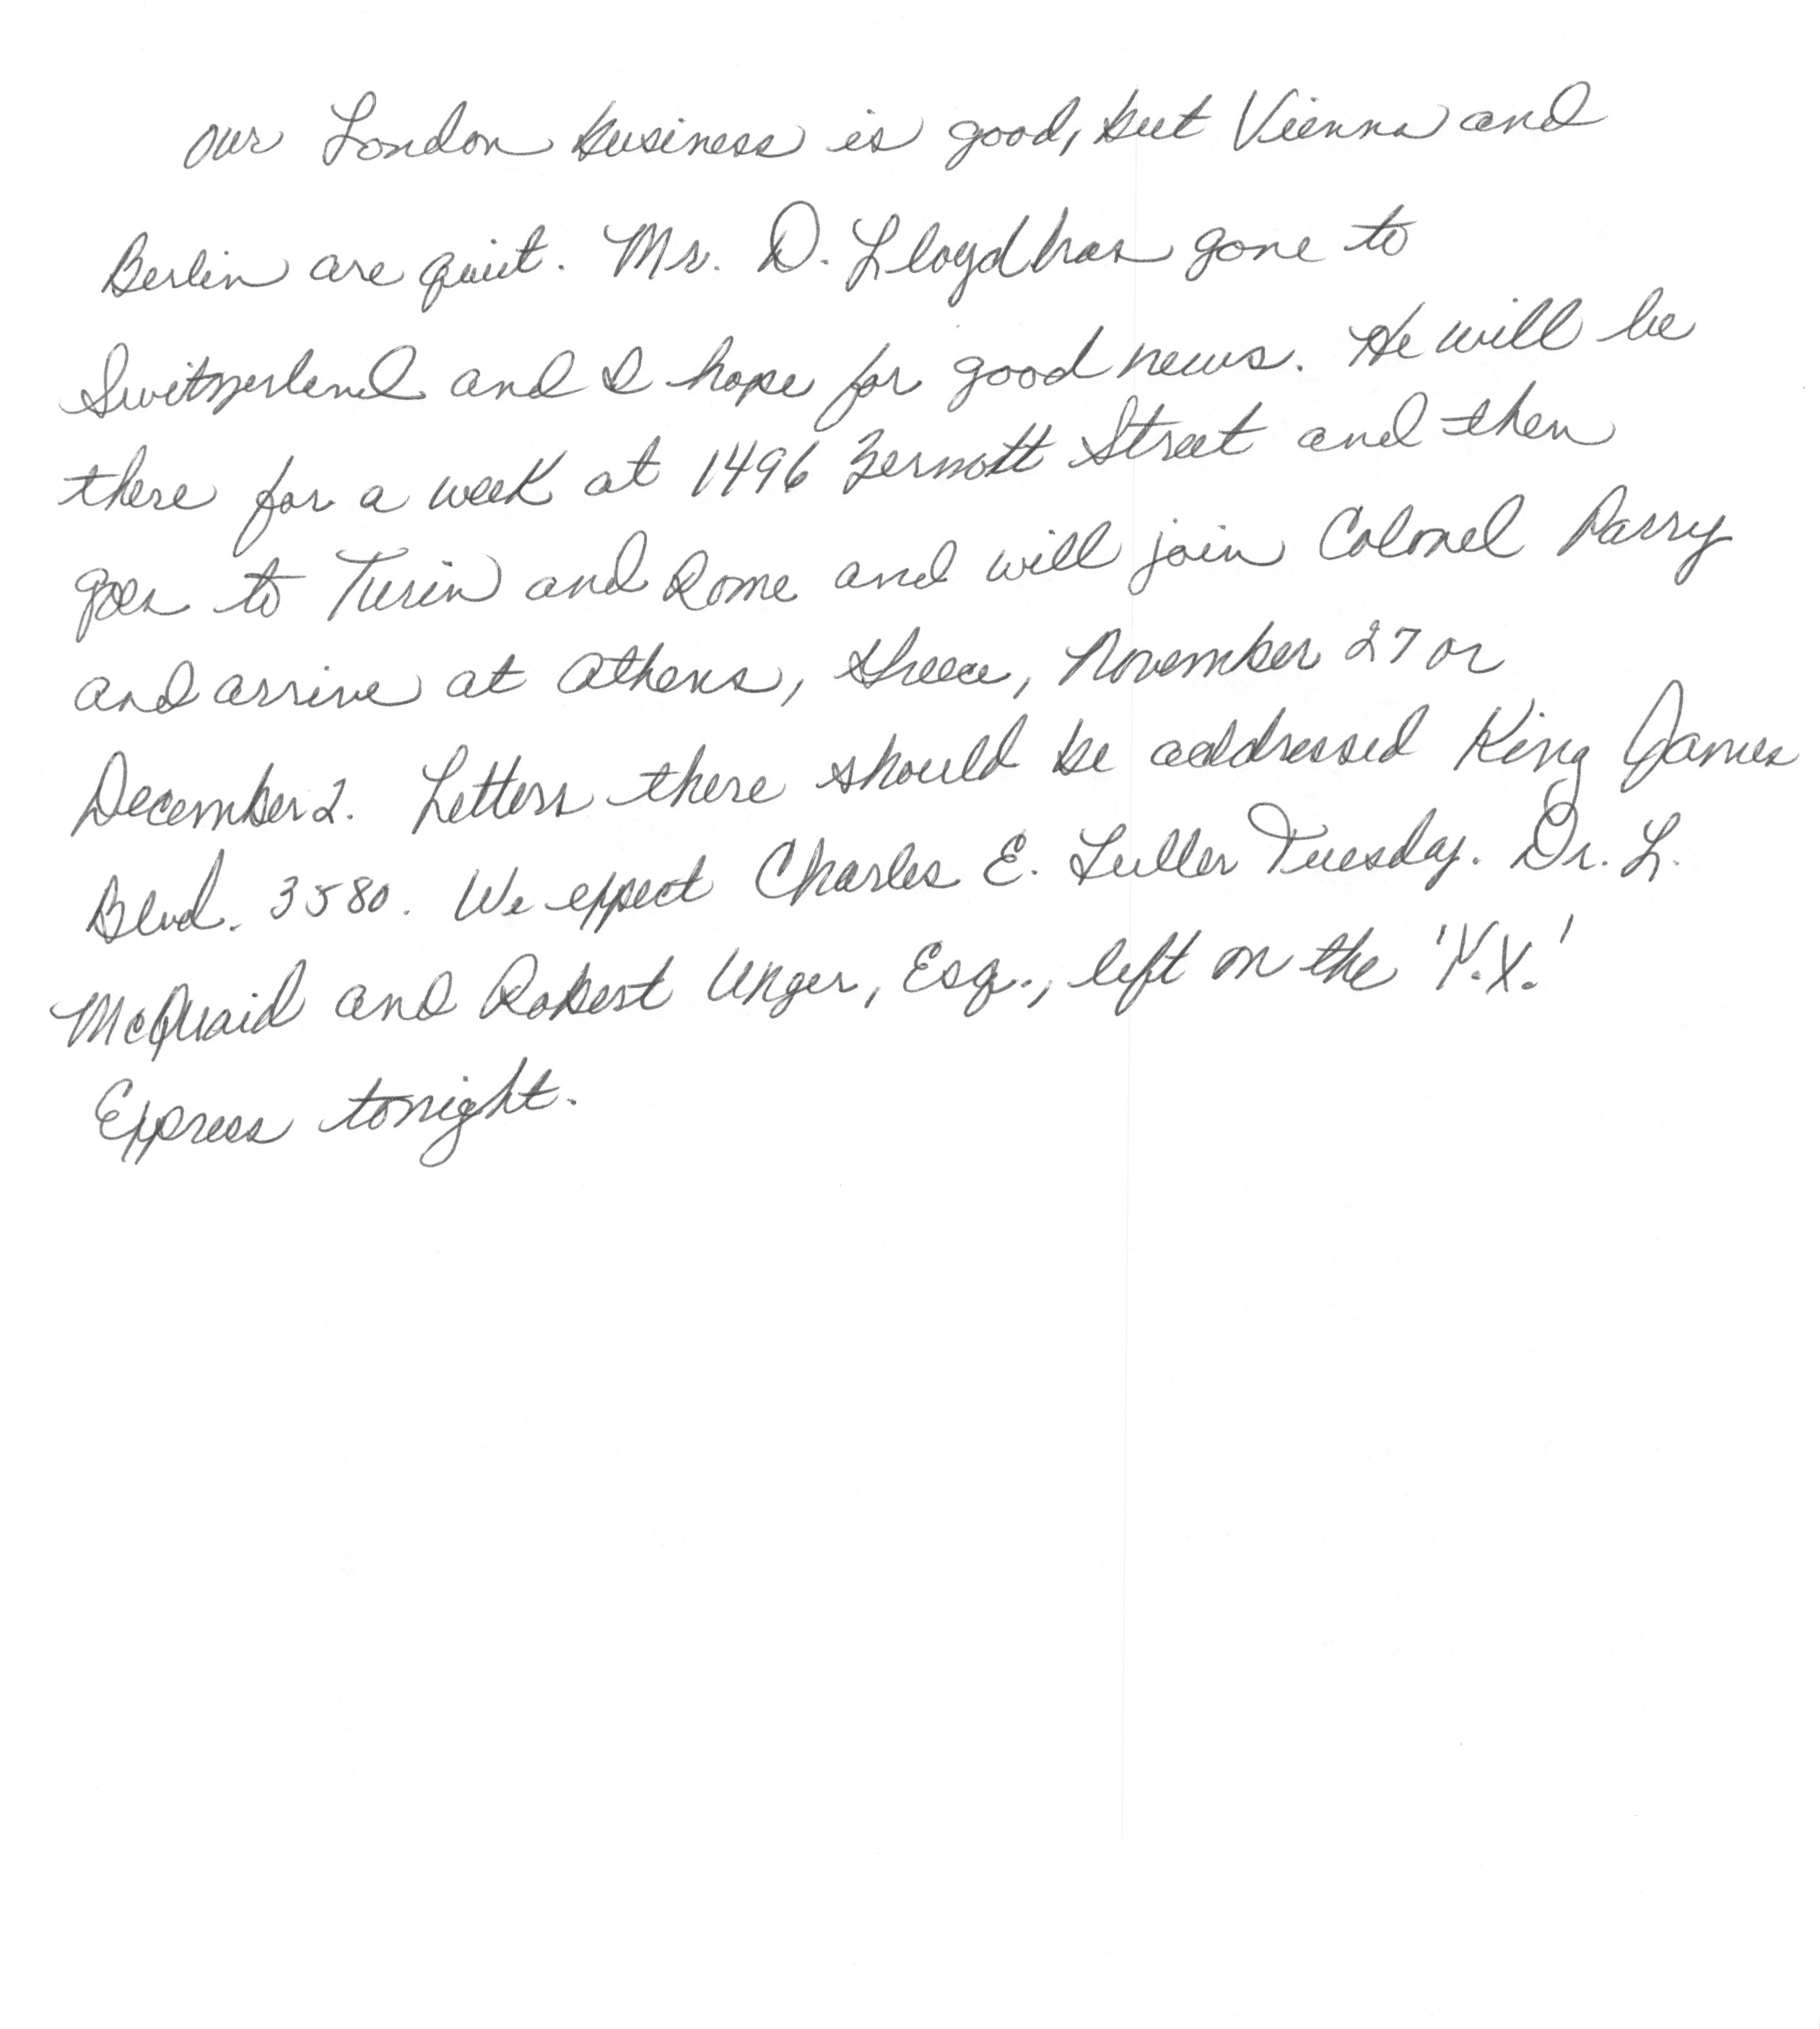 our London business is good, but Vienna and
Berlin are quiet. Mr. D. Lloyd has gone to
Switzerland and I hope for good news. He will be
there for a week at 1496 Zermott Street and then
goes to Turin and Rome and will join Colonel Parry
and arrive at Athens, Greece, November 27 or
December 2. Letters there should be addressed King James
Blvd. 3580. We expect Charles E. Fuller Tuesday. Dr. L.
McQuaid and Robert Unger, Esq., left on the 'Y.X.'
Express tonight.